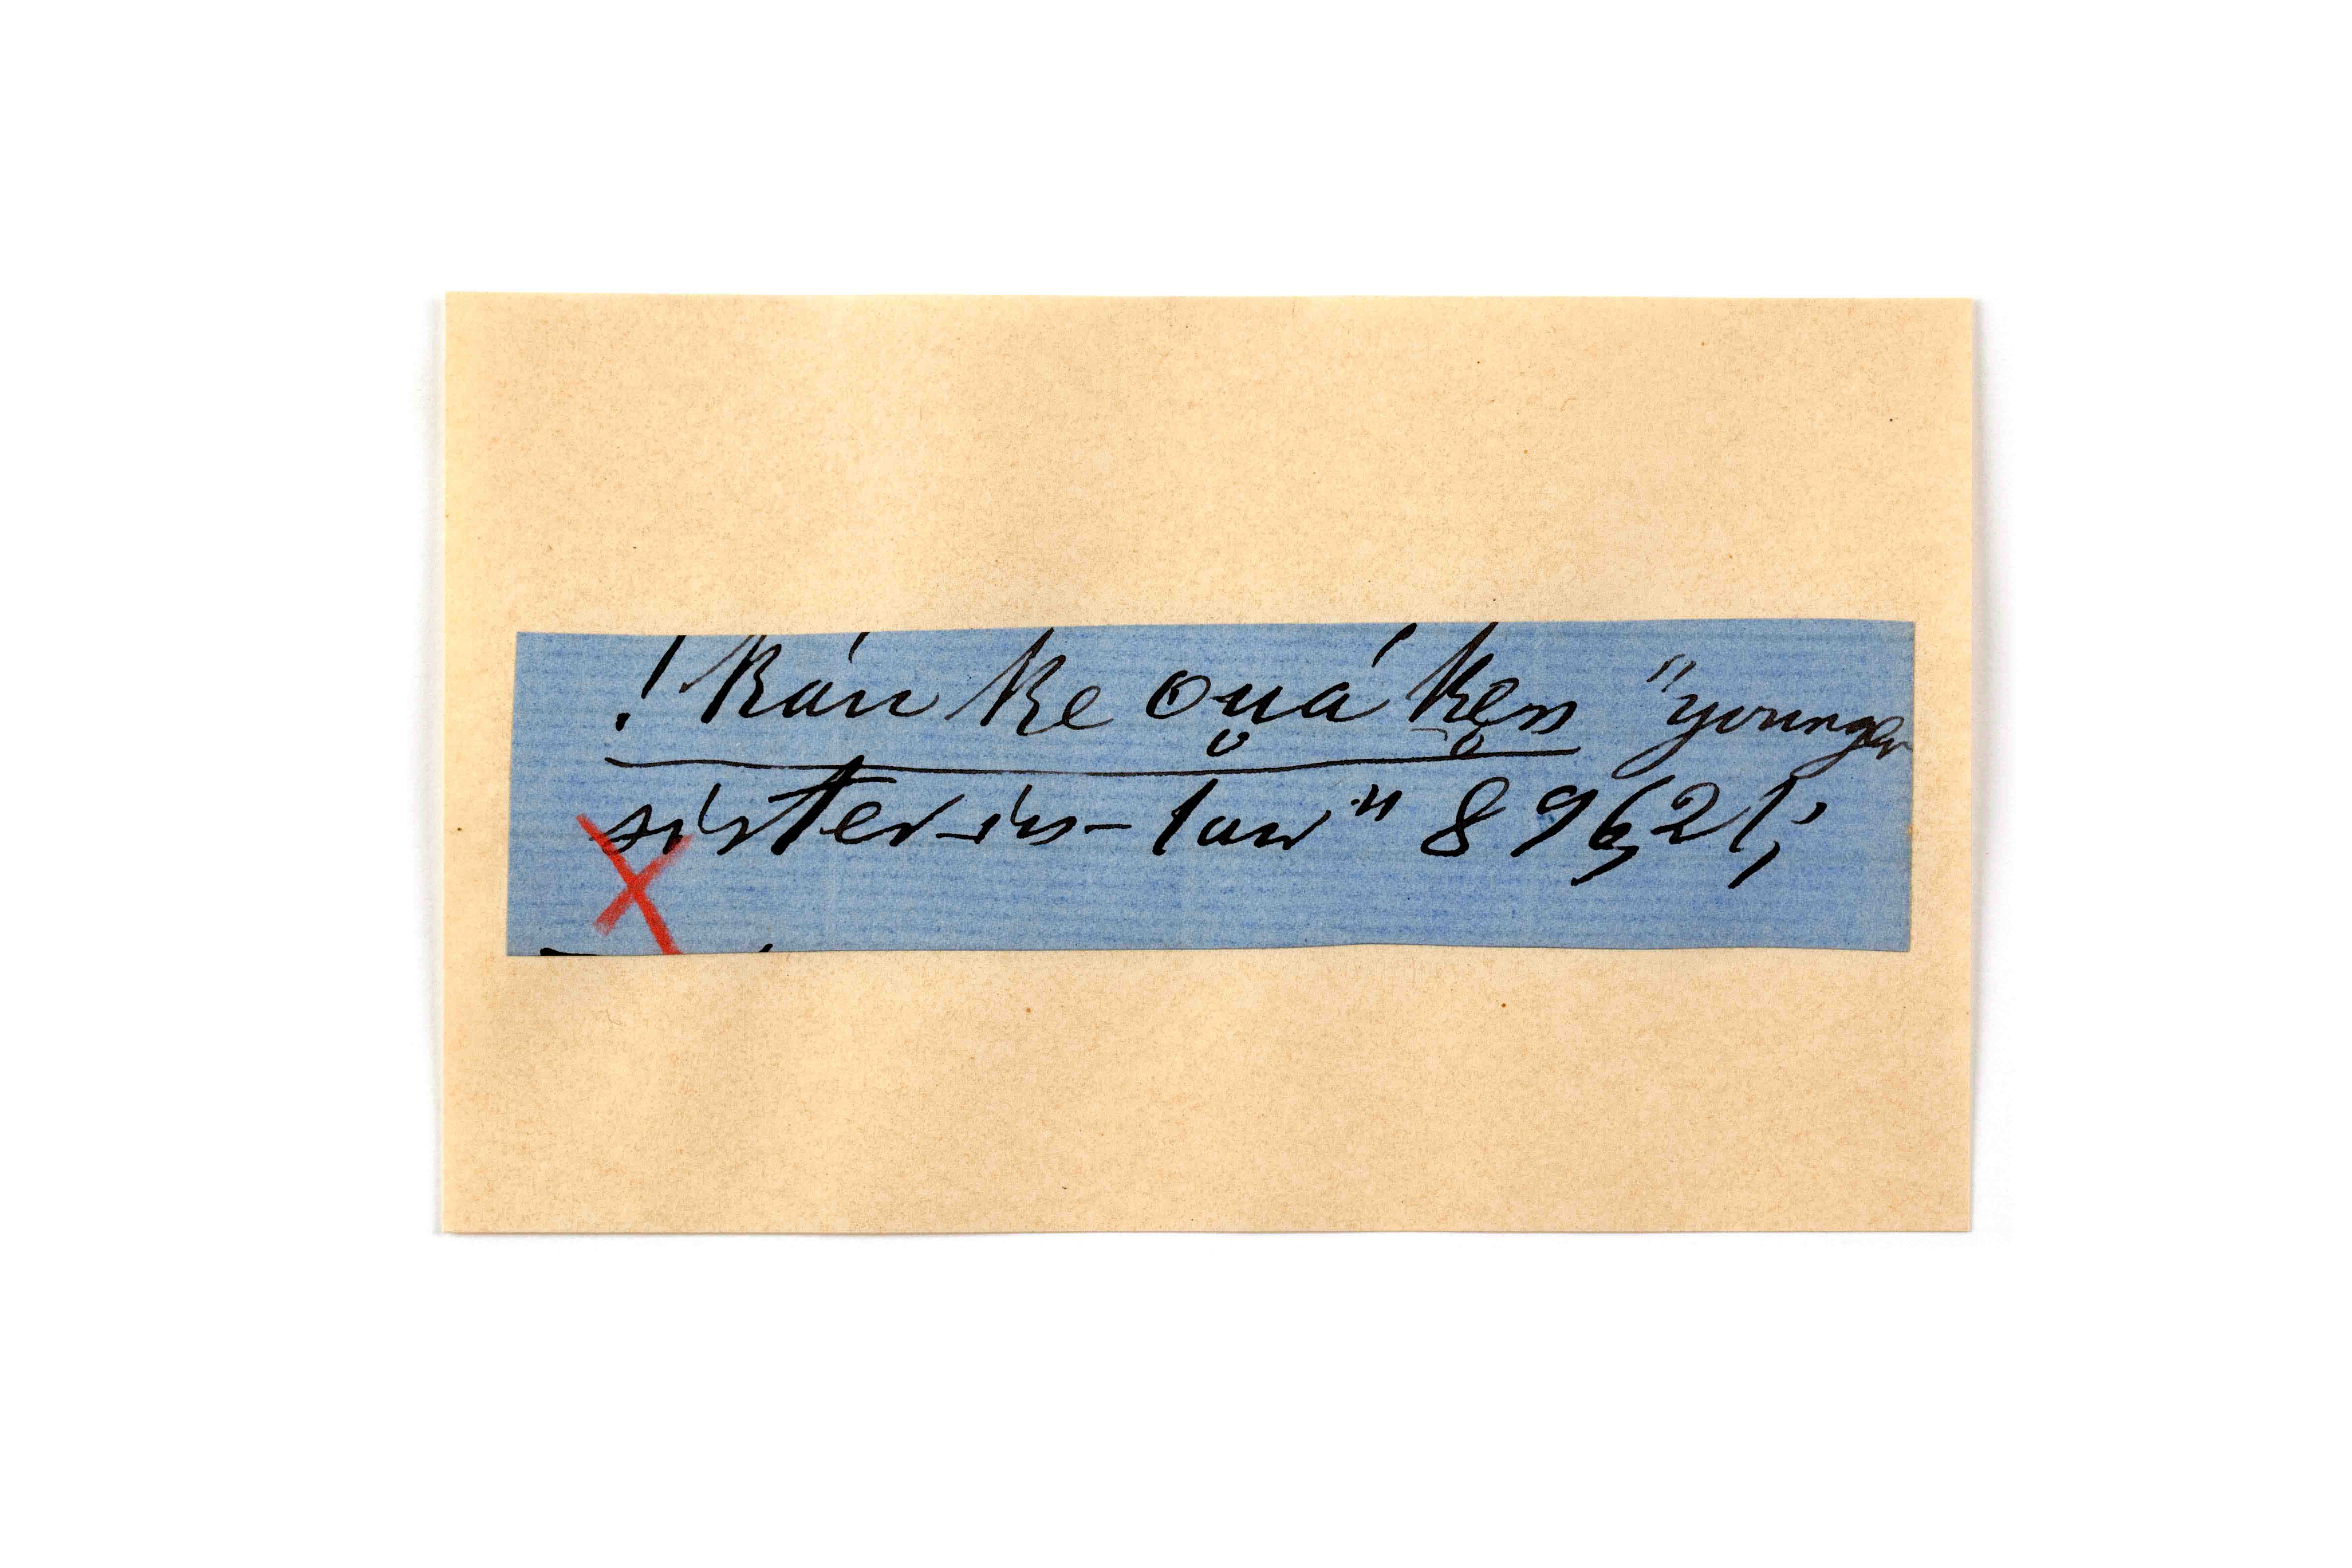 !kán ke ou̯á ke̥n "younger
sister-in-law" 8962½;